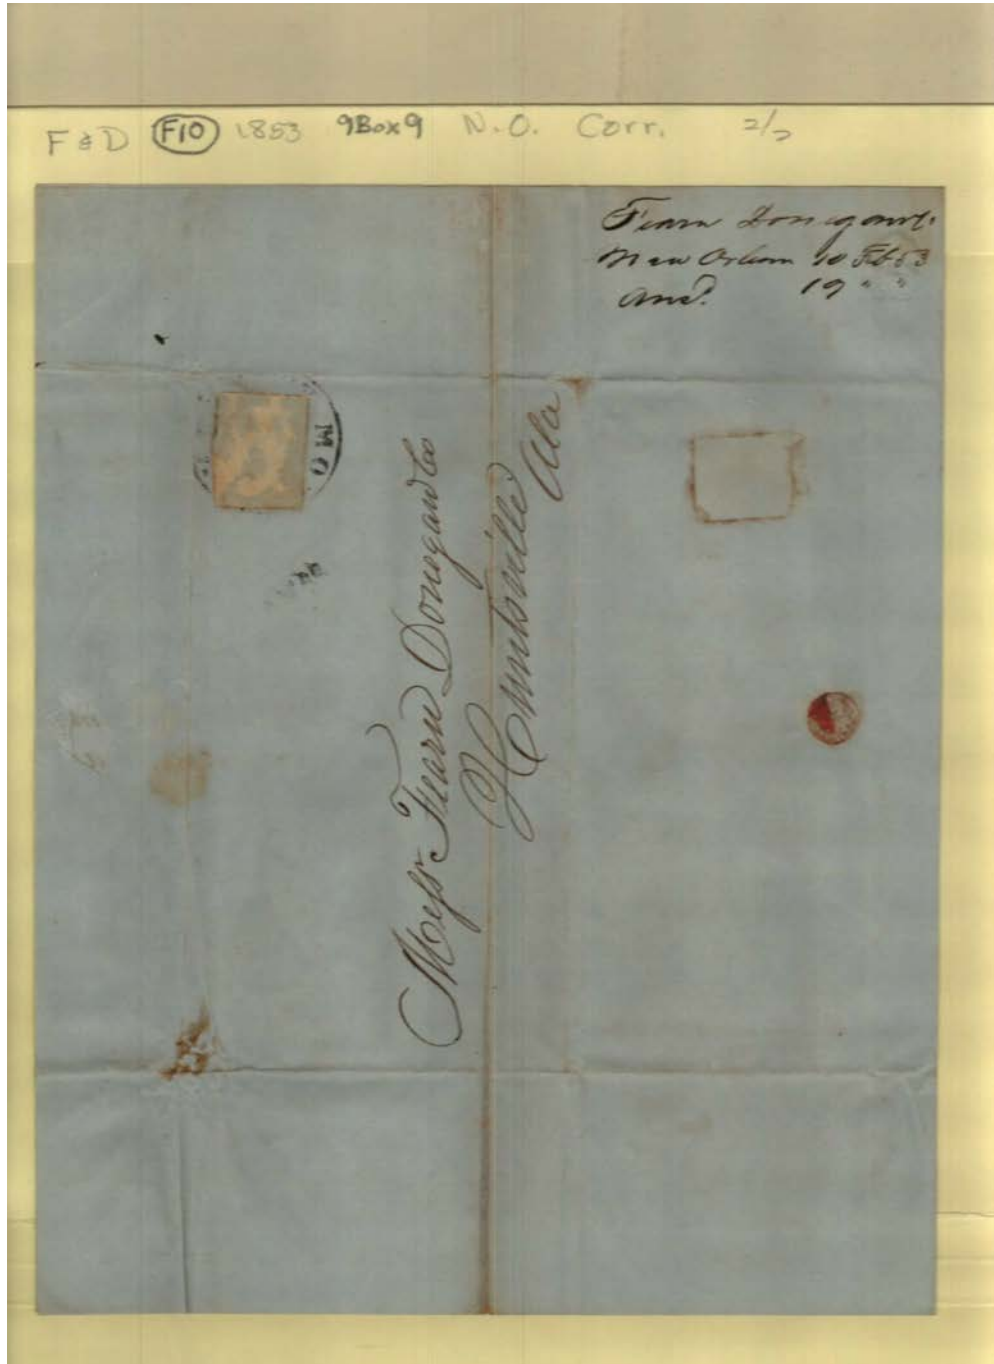 F & D F10 1853 9Box9 N.O. Corr. 2/2
Fearn Donegan &c.
New Orleans 10 Feb 53
Ansd. 19 " "
Messr Fearn Donegan & Co
Huntsville
Ala